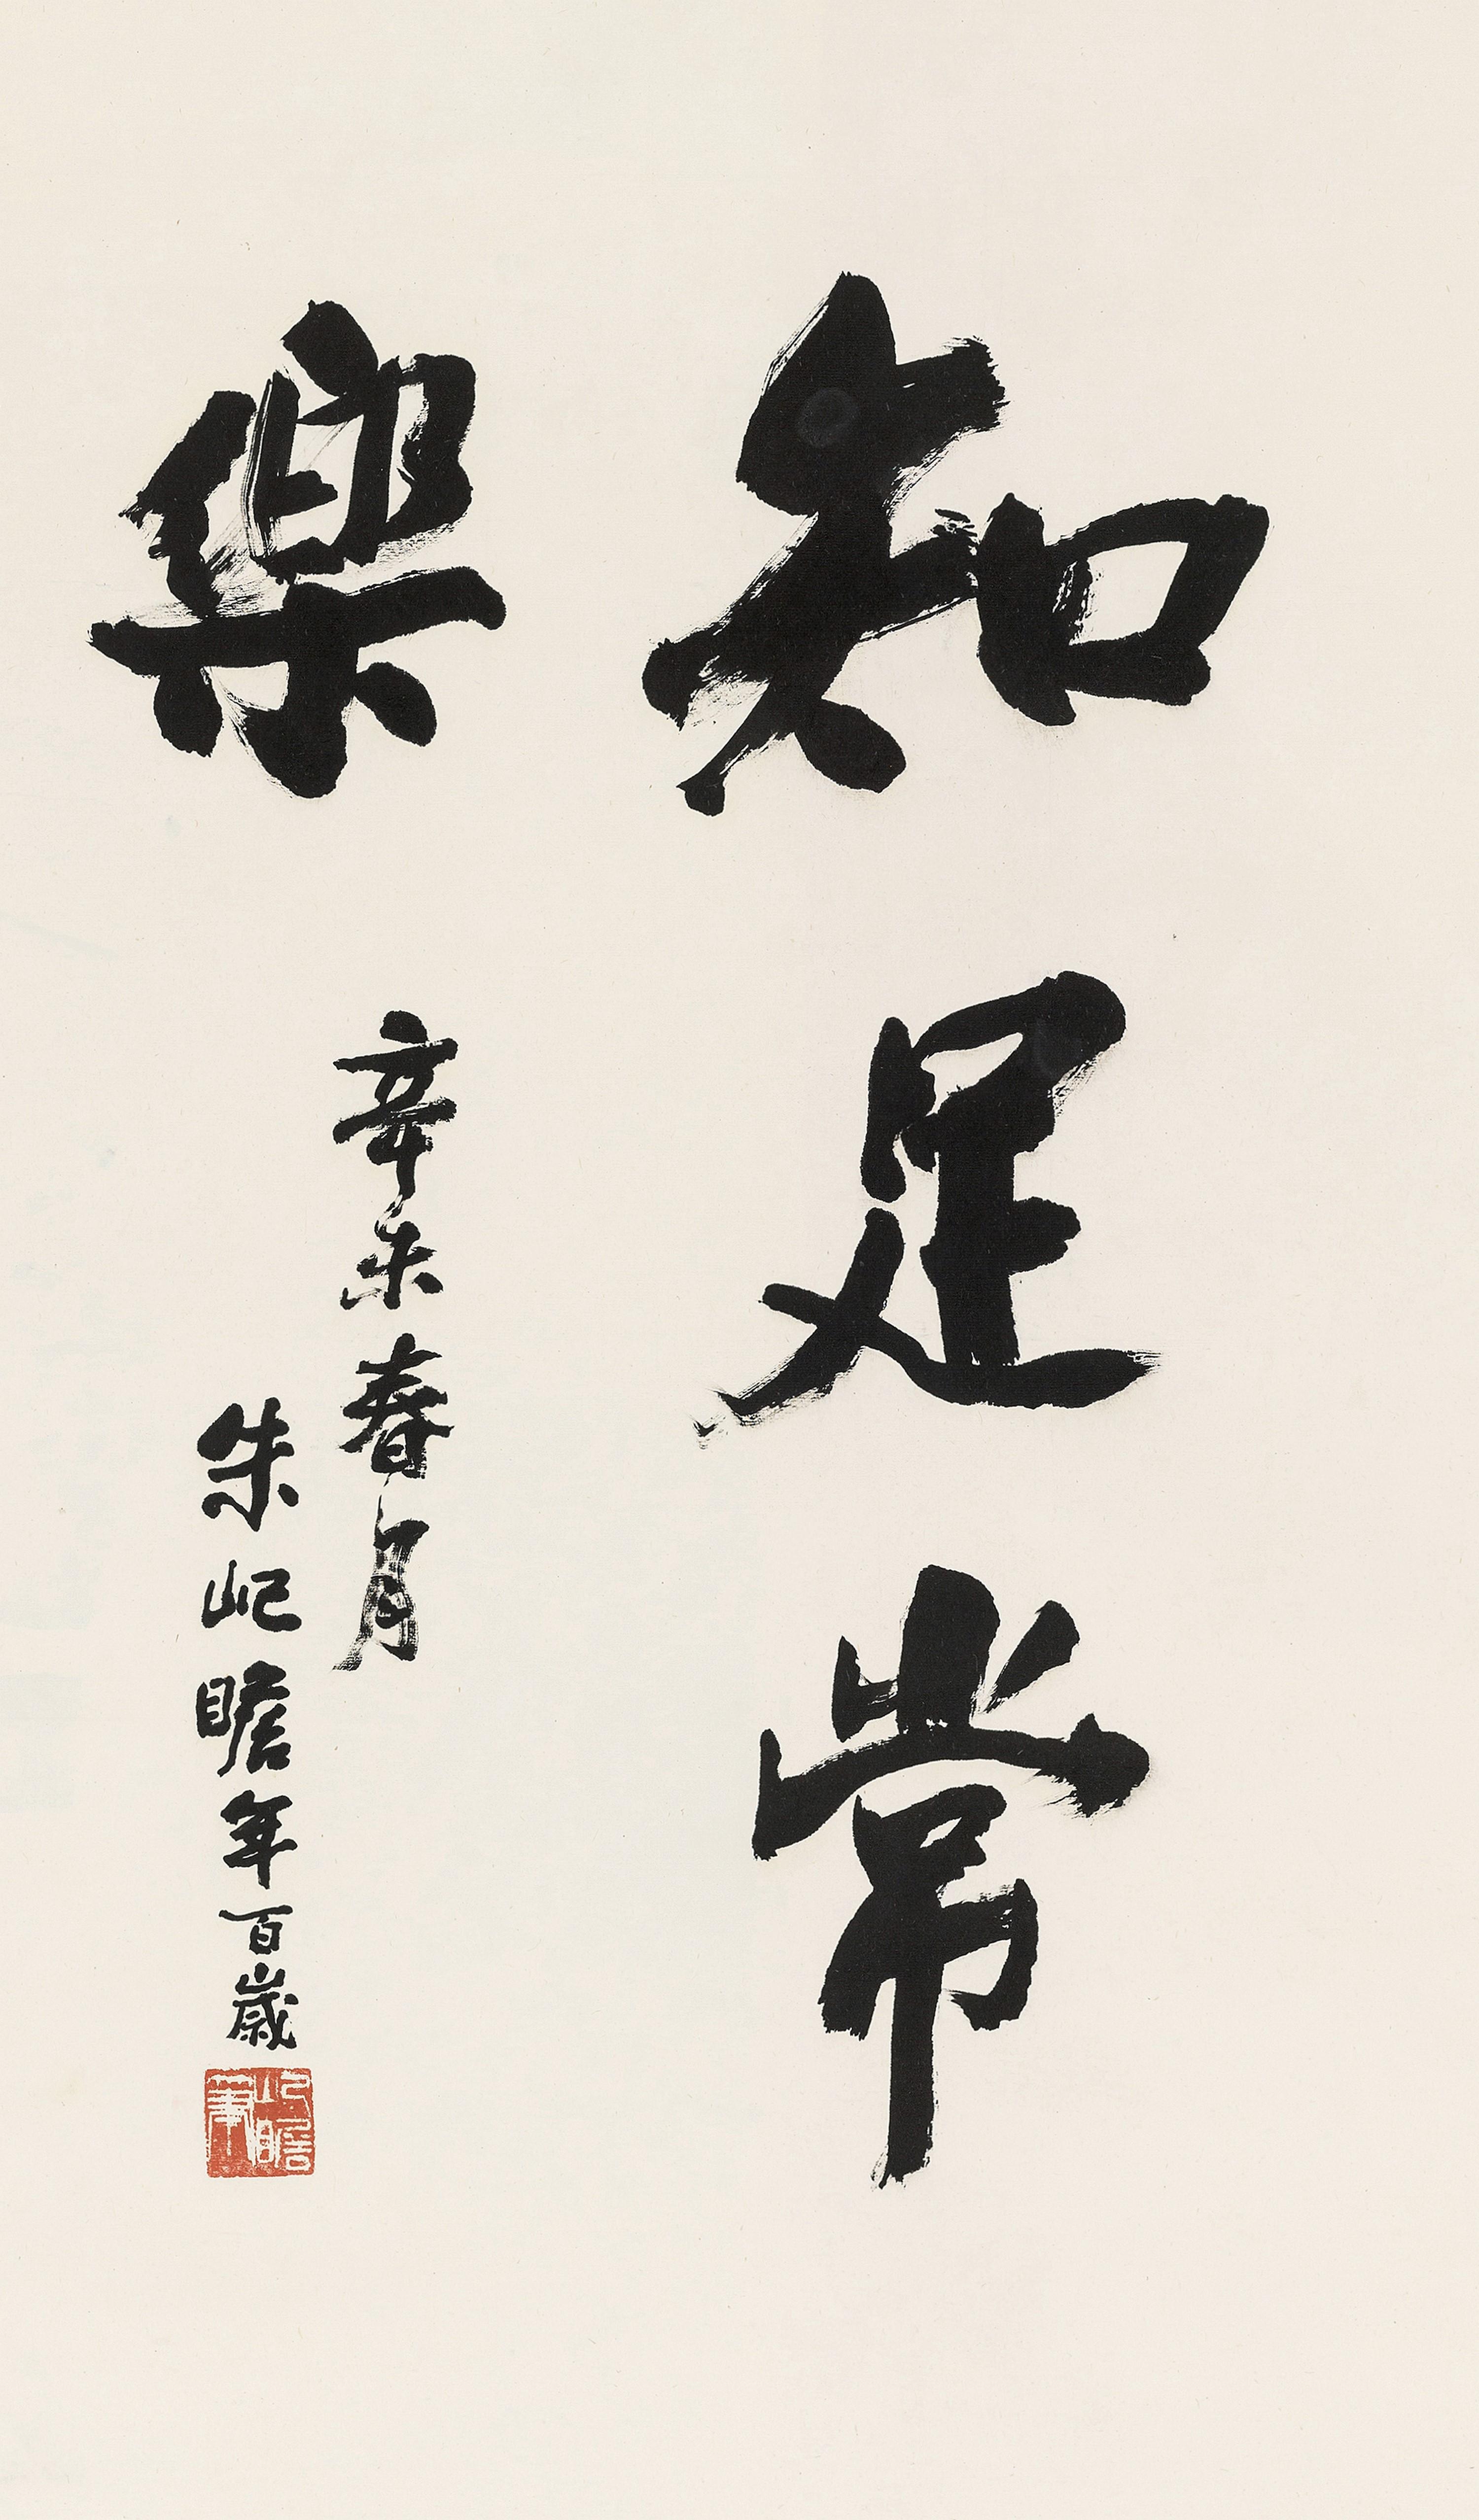 知足常
樂
辛未春月
朱屺瞻年百歲
屺瞻